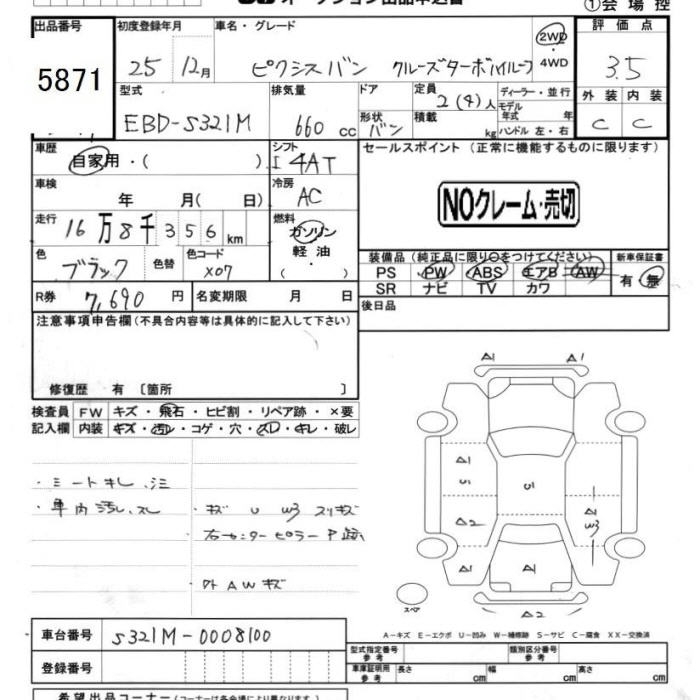 オークション出品申込書
①会場控
出品番号
5871
初度登録年月
25 12月
車名・グレード
ピクシスバン クルーズターボハイルーフ
2WD
・
4WD
評価点
3.5
外装 内装
C C
型式
EBD-S321M
排気量
660 cc
ドア
形状
バン
定員
2(4)人
積載
kg
ディーラー・並行
モデル年式 年
ハンドル 左・右
車歴
自家用・( )
シフト
I 4AT
セールスポイント (正常に機能するものに限ります)
NOクレーム・売切
車検
年 月( 日)
冷房
AC
走行
16万8千356km
燃料
ガソリン
軽油・
( )
色
ブラック
色替
色コード
X07
装備品 (純正品に限り○をつけてください)
PS PW ABS エアB AW
SR ナビ TV カワ
新車保証書
有・無
R券
7,690 円
名変期限 月 日
後日品
注意事項申告欄 (不具合内容等は具体的に記入して下さい)
修復歴 有 〔箇所 〕
検査員
記入欄
FW キズ・飛石・ヒビ割・リペア跡・×要
内装 キズ・汚レ・コゲ・穴・スレ・キレ・破レ
・シートキレ、シミ
・車内汚レ、スレ
・キズ U W3 スリキズ
右センターピラー P跡
外 AWキズ
A1 A1
A1
U
A2
A1
U
A1
W3
A1
A1
A2
スペア
A-キズ E-エクボ U-凹み W-補修跡 S-サビ C-腐食 XX-交換済
車台番号
S321M-0008100
登録番号
型式指定番号
参考
類別区分番号
参考
車庫証明用
参考
長さ cm 幅 cm 高さ cm
希望出品コーナー (コーナーは各会場により異なります)